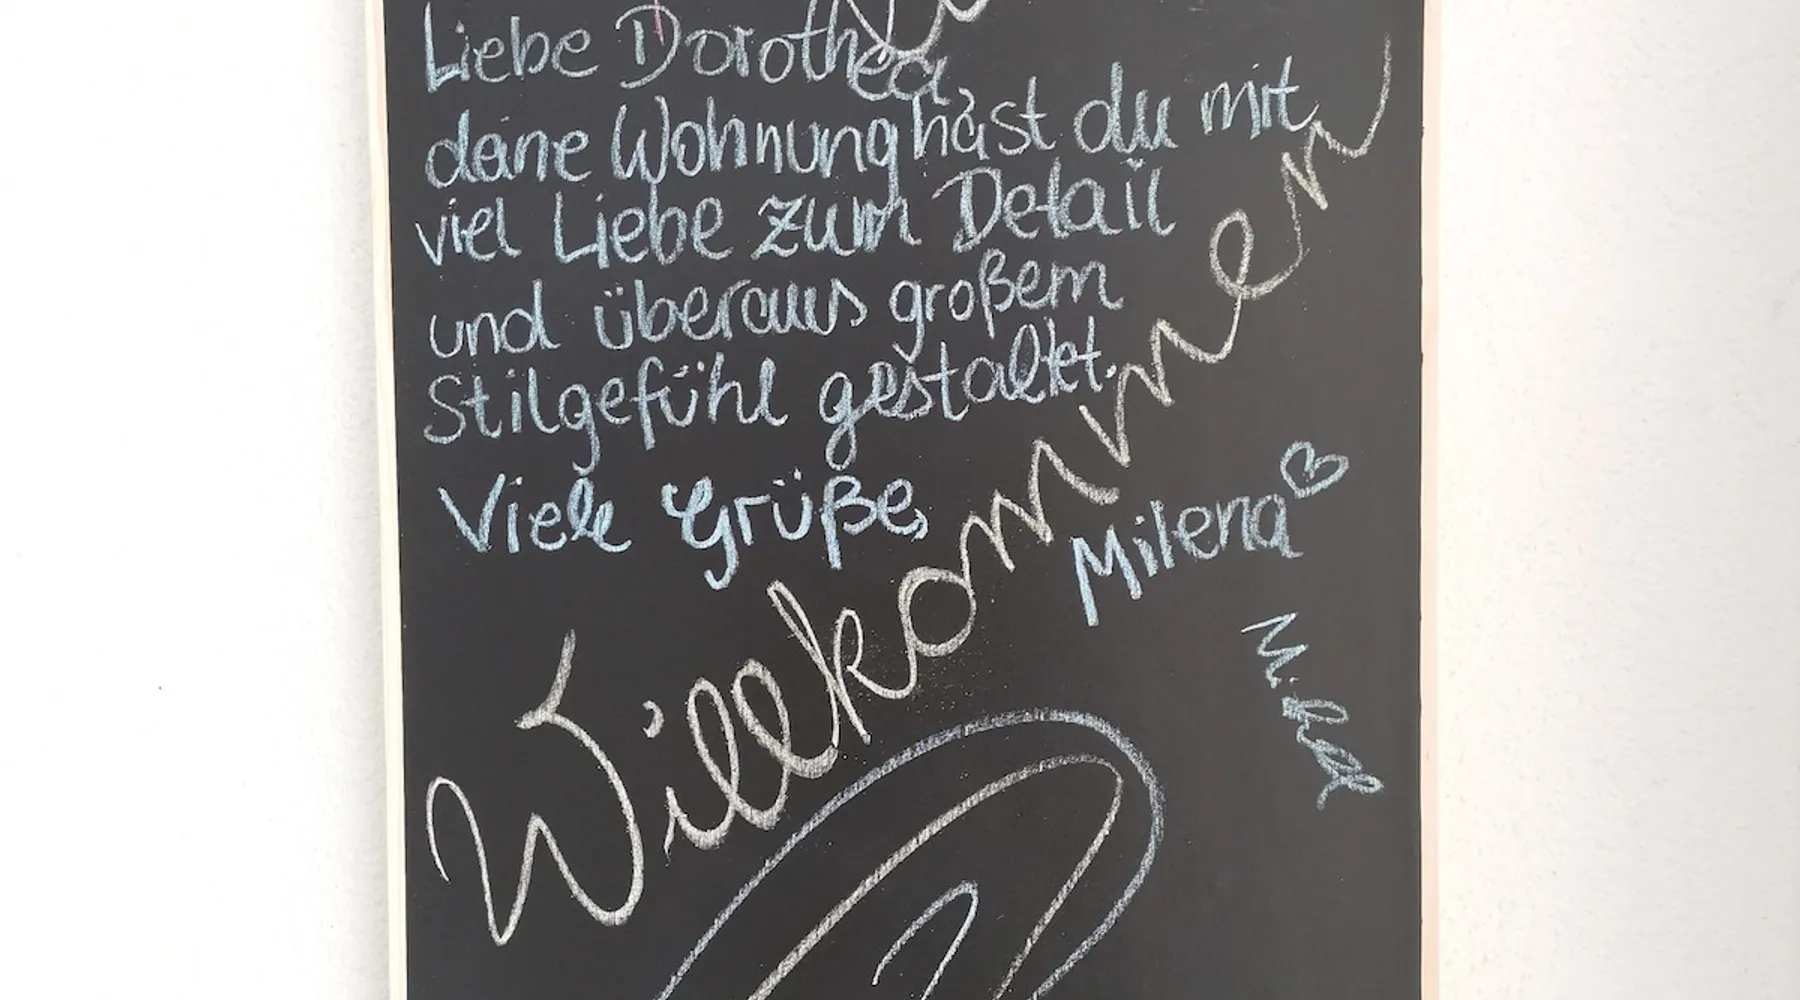 Liebe Dorothea,
deine Wohnung hast du mit
viel Liebe zum Detail
und überaus großem
Stilgefühl gestaltet.
Viele Grüße,
Milena
Willkommen